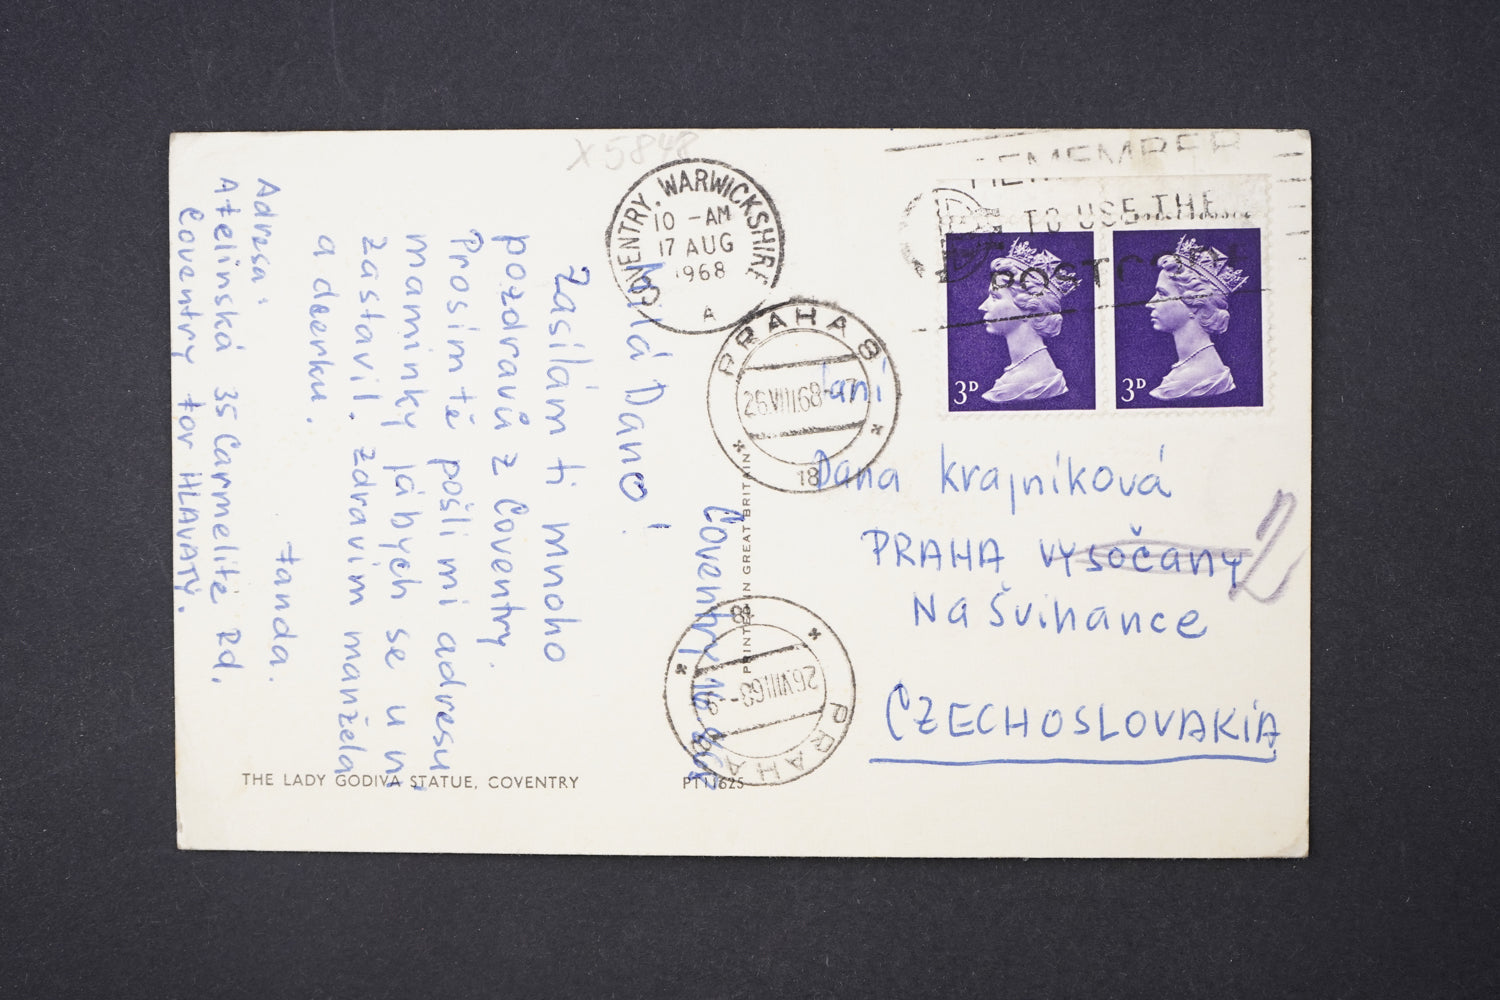 x 5848
COVENTRY. WARWICKSHIRE
10 - AM
17 AUG
1968
A
REMEMBER
TO USE THE
POSTCODE
3D
3D
PRAHA 8
26.VIII.68
18
PRAHA
26.VIII.68
18
Coventry 16
Milá Dano!
Zasílám ti mnoho
pozdravů z Coventry.
Prosím tě pošli mi adresu
maminky já bych se u ní
zastavil. Zdravím manžela
a dcerku.
Standa.
Adresa:
Atelinská 35 Carmelite Rd.
Coventry for HLAVATÝ.
Paní
Dana Krajníková
PRAHA Vysočany
2
Na Švihance
CZECHOSLOVAKIA
PRINTED IN GREAT BRITAIN
THE LADY GODIVA STATUE, COVENTRY
PT11625